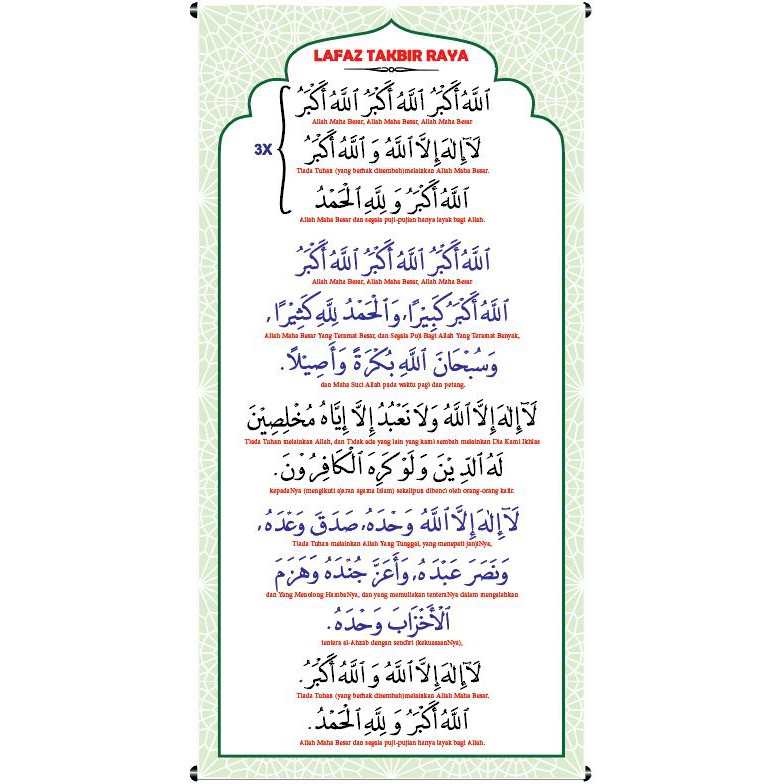 LAFAZ TAKBIR RAYA
اَللهُ أَكْبَرُ اَللهُ أَكْبَرُ اَللهُ أَكْبَرُ
Allah Maha Besar, Allah Maha Besar, Allah Maha Besar
3X
لَآ إِلٰهَ إِلَّا اَللهُ وَ اَللهُ أَكْبَرُ
Tiada Tuhan (yang berhak disembah)melainkan Allah Maha Besar.
اَللهُ أَكْبَرُ وَ لِلّٰهِ الْحَمْدُ
Allah Maha Besar dan segala puji-pujian hanya layak bagi Allah.
اَللهُ أَكْبَرُ اَللهُ أَكْبَرُ اَللهُ أَكْبَرُ
Allah Maha Besar, Allah Maha Besar, Allah Maha Besar
اَللهُ أَكْبَرُ كَبِيْرًا، وَالْحَمْدُ لِلّٰهِ كَثِيْرًا،
Allah Maha Besar Yang Teramat Besar, dan Segala Puji Bagi Allah Yang Teramat Banyak,
وَسُبْحَانَ اللهِ بُكْرَةً وَأَصِيْلًا.
dan Maha Suci Allah pada waktu pagi dan petang.
لَآ إِلٰهَ إِلَّا اَللهُ وَلَا نَعْبُدُ إِلَّا إِيَّاهُ مُخْلِصِيْنَ
Tiada Tuhan melainkan Allah, dan Tidak ada yang lain yang kami sembah melainkan Dia Kami Ikhlas
لَهُ الدِّيْنَ وَلَوْ كَرِهَ الْكَافِرُوْنَ.
kepadaNya (mengikuti ajaran agama Islam) sekalipun dibenci oleh orang-orang kafir.
لَآ إِلٰهَ إِلَّا اَللهُ وَحْدَهُ، صَدَقَ وَعْدَهُ،
Tiada Tuhan melainkan Allah Yang Tunggal, yang menepati janjiNya,
وَنَصَرَ عَبْدَهُ، وَأَعَزَّ جُنْدَهُ وَهَزَمَ
dan Yang Menolong HambaNya, dan yang memuliakan tenteraNya dalam mengalahkan
الْأَحْزَابَ وَحْدَهُ.
tentera al-Ahzab dengan sendiri (kekuasaanNya),
لَآ إِلٰهَ إِلَّا اَللهُ وَ اَللهُ أَكْبَرُ.
Tiada Tuhan (yang berhak disembah)melainkan Allah Maha Besar.
اَللهُ أَكْبَرُ وَ لِلّٰهِ الْحَمْدُ.
Allah Maha Besar dan segala puji-pujian hanya layak bagi Allah.